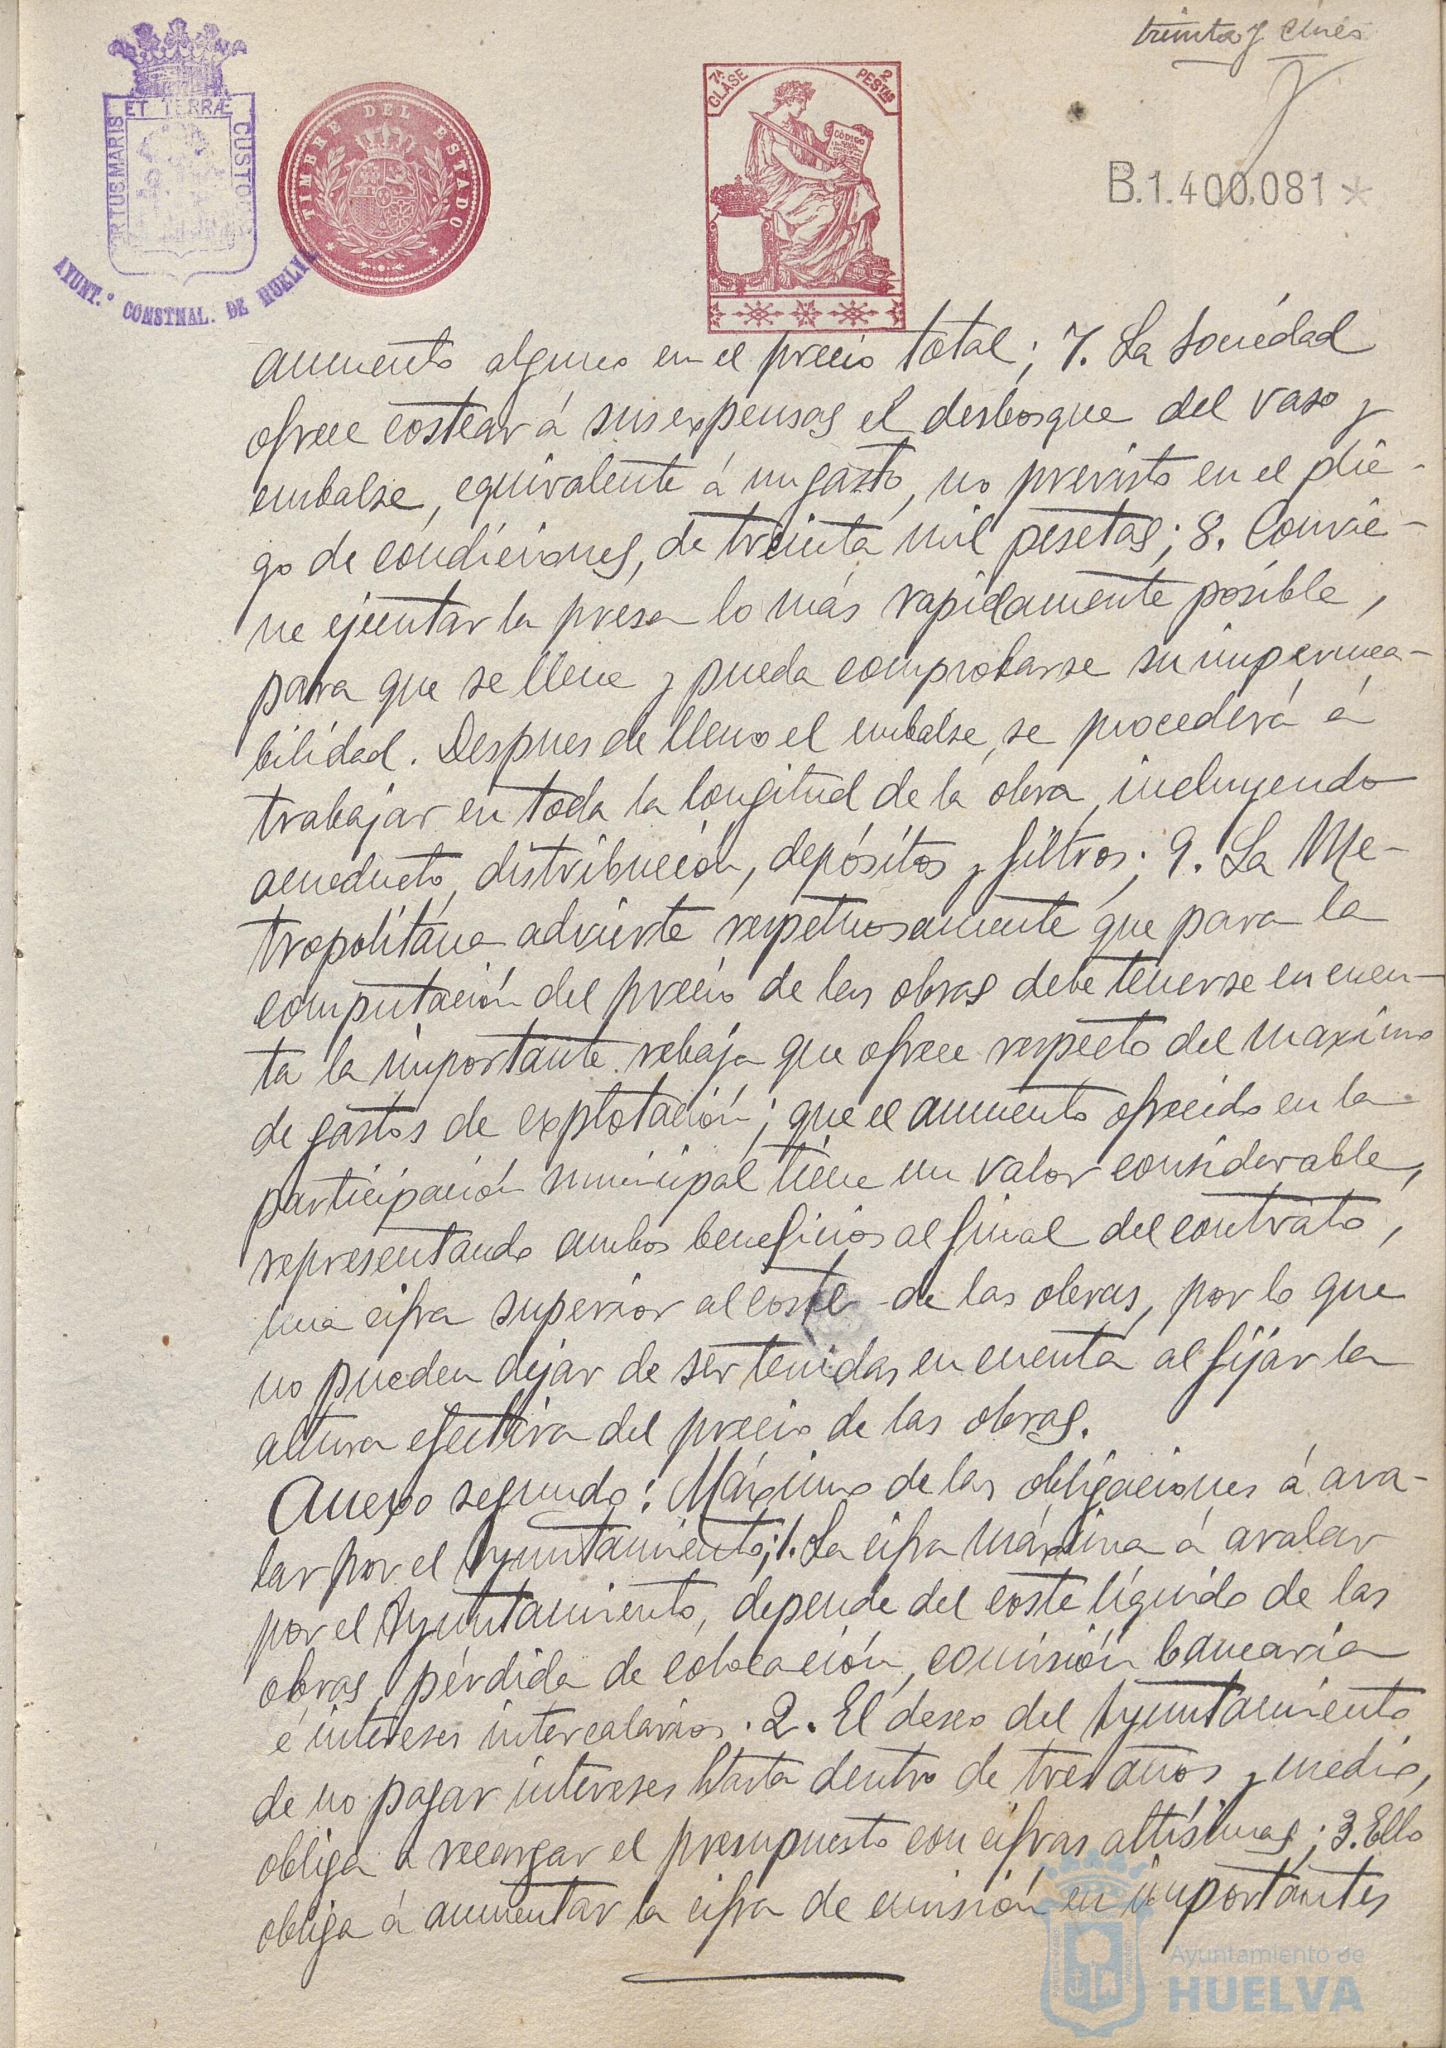 treinta y cinco
PORTUS MARIS ET TERRÆ CUSTODIA
AYUNT.º CONSTNAL. DE HUELVA
TIMBRE DEL ESTADO
7ª CLASE
2 PESTAS
CÓDIGO
B.1.400,081*
aumento alguno en el precio total; 7. La Sociedad
ofrece costear á sus expensas el desbosque del vaso y
embalse, equivalente á un gasto, no previsto en el plie-
go de condiciones, de treinta mil pesetas; 8. Convie-
ne ejecutar la presa lo más rapidamente posible,
para que se llene y pueda comprobarse su impermea-
bilidad. Despues de lleno el embalse, se procederá á
trabajar en toda la longitud de la obra, incluyendo
acueducto, distribución, depósitos y filtros; 9. La Me-
tropolitana advierte respetuosamente que para la
computación del precio de las obras debe tenerse en cuen-
ta la importante rebaja que ofrece respecto del maximo
de gastos de explotación; que el aumento ofrecido en la
participación municipal tiene un valor considerable,
representando ambos beneficios al final del contrato,
una cifra superior al coste de las obras, por lo que
no pueden dejar de ser tenidas en cuenta al fijar la
altura efectiva del precio de las obras.
Anexo segundo: Máximo de las obligaciones á ava-
lar por el Ayuntamiento; 1. La cifra máxima á avalar
por el Ayuntamiento, depende del coste líquido de las
obras, pérdida de colocación, comisión bancaria
é intereses intercalarios. 2. El deseo del Ayuntamiento
de no pagar intereses hasta dentro de tres años y medio,
obliga á recargar el presupuesto con cifras altísimas; 3. Ello
obliga á aumentar la cifra de emisión en importantes
Ayuntamiento de
HUELVA